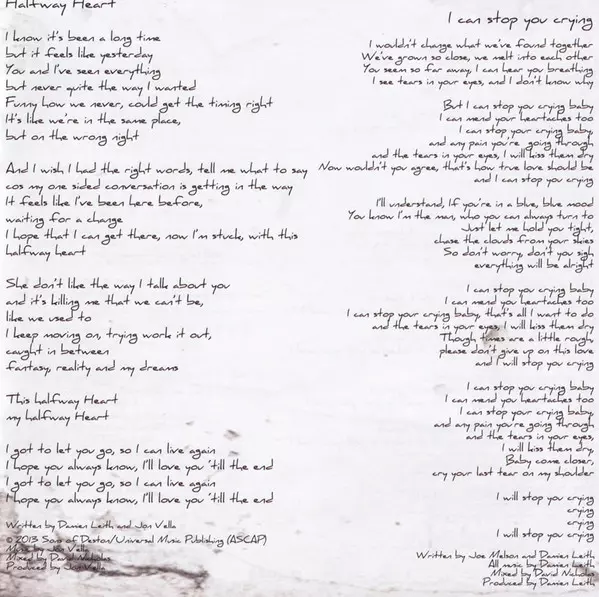 Halfway Heart
I know it's been a long time
but it feels like yesterday
You and I've seen everything
but never quite the way I wanted
Funny how we never, could get the timing right
It's like we're in the same place,
but on the wrong night
And I wish I had the right words, tell me what to say
cos my one sided conversation is getting in the way
It feels like I've been here before,
waiting for a change
I hope that I can get there, now I'm stuck, with this
halfway heart
She don't like the way I talk about you
and it's killing me that we can't be,
like we used to
I keep moving on, trying work it out,
caught in between
fantasy, reality and my dreams
This halfway Heart
my halfway Heart
I got to let you go, so I can live again
I hope you always know, I'll love you 'till the end
I got to let you go, so I can live again
I hope you always know, I'll love you 'till the end
Written by Damien Leith and Jon Vella
© 2013 Sons of Deston/Universal Music Publishing (ASCAP)
Music by Jon Vella
Mixed by David Nicholas
Produced by Jon Vella
I can stop you crying
I wouldn't change what we've found together
We've grown so close, we melt into each other
You seem so far away, I can hear you breathing
I see tears in your eyes, and I don't know why
But I can stop you crying baby
I can mend your heartaches too
I can stop you crying baby,
and any pain you're going through
and the tears in your eyes, I will kiss them dry
Now wouldn't you agree, that's how true love should be
and I can stop you crying
I'll understand, If you're in a blue, blue mood
You know I'm the man, who you can always turn to
Just let me hold you tight,
chase the clouds from your skies
So don't worry, don't you sigh
everything will be alright
I can stop you crying baby
I can mend you heartaches too
I can stop you crying baby, that's all I want to do
and the tears in your eyes, I will kiss them dry
Though times are a little rough,
please don't give up on this love
and I will stop you crying
I can stop you crying baby
I can mend you heartaches too
I can stop your crying baby,
and any pain you're going through
and the tears in your eyes,
I will kiss them dry,
Baby come closer,
cry your last tear on my shoulder
I will stop you crying
crying
crying
I will stop you crying
Written by Joe Melson and Damien Leith
All music by Damien Leith
Mixed by David Nicholas
Produced by Damien Leith